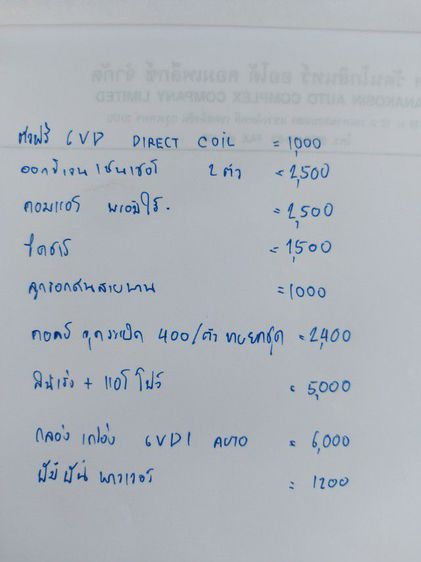 รัตนโกสินทร์ ออโต้ คอมเพล็กซ์ จำกัด
ANAKOSIN AUTO COMPLEX COMPANY LIMITED
6VD DIRECT COIL = 1,000
ออกซิเจน เซ็นเซอร์ 2 ตัว = 2,500
คอมแอร์ พร้อมใช้. = 2,500
ไดชาร์ = 1,500
ลูกรอกดันสายพาน = 1000
คอยล์ จุดระเบิด 400/ตัว ขายยกชุด = 2,400
ลิ้นเร่ง + แอร์โฟร์ = 5,000
กล่อง เครื่อง 6VD1 AUTO = 6,000
ปั๊ม ปั่น พาวเวอร์ = 1200